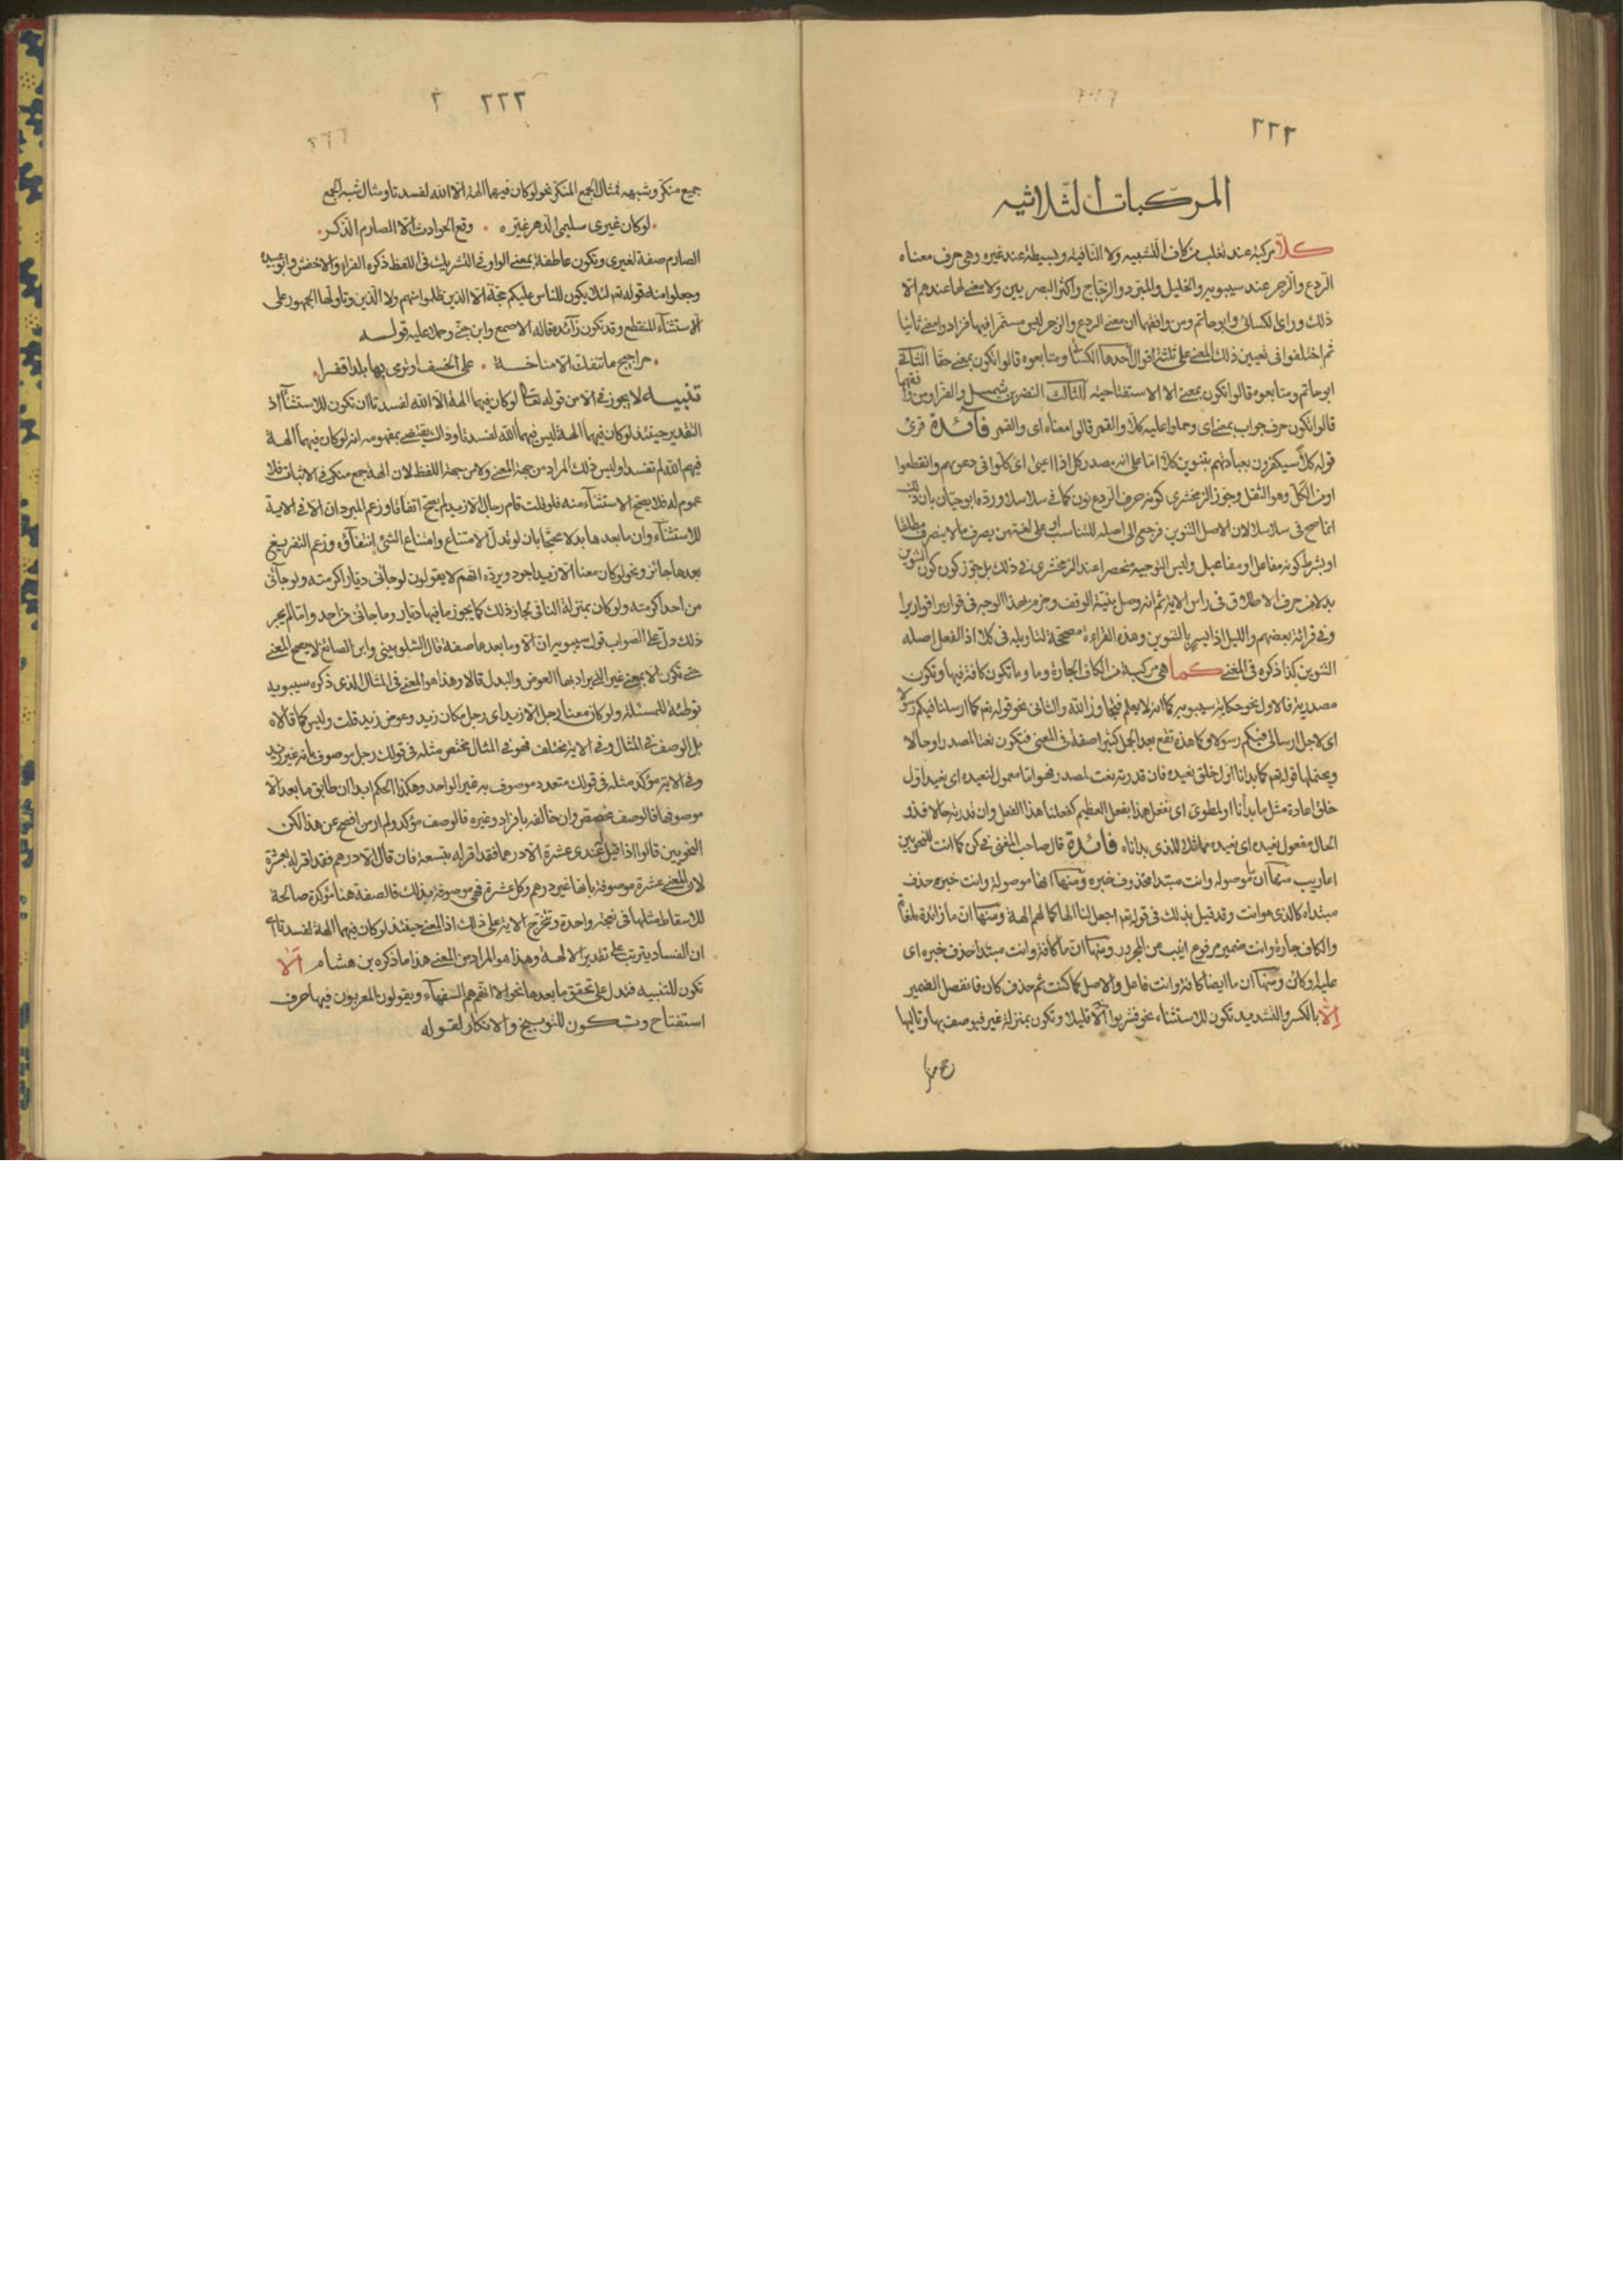 ٢٢٢
المركبات الثلاثيه
كلا مركبة عند ثعلب من كاف التشبيه ولا النافية وبسيطة عند غيره وهى حرف معناه
الردع والزجر عند سيبويه والخليل والمبرد والزجاج واكثر البصريين ولا معنى لها عندهم الا
ذلك وراى الكسائى وابو حاتم ومن وافقهما ان معنى الردع والزجر ليس مستمرا فيها فزادوا معنى ثانيا
ثم اختلفوا فى تعيين ذلك المعنى على ثلثة اقوال احدها الكسائى ومتابعوه قالوا تكون بمعنى حقا الثانى
ابو حاتم ومتابعوه قالوا تكون بمعنى الا الاستفتاحيه الثالث النضر بن شميل والفراء ومن وافقهما
قالوا تكون حرف جواب بمعنى اى وحملوا عليه كلا والقمر قالوا معناه اى والقمر فآئدة قرئ
قوله كلا سيكفرون بعبادتهم بتنوين كلا اما على انه مصدر كل اذا اعيى اى كلوا فى دعويهم وانقطعوا
او من الكل وهو الثقل وجوز الزمخشرى كونه حرف الردع نون كما فى سلاسلا ورده ابو حيان بان ذلك
انما صح فى سلاسلا لان الاصل التنوين فرجع الى اصله للتناسب او على لغة من يصرف ما لا ينصرف مطلقا
او بشرط كونه مفاعل او مفاعيل وليس التوجيه منحصرا عند الزمخشرى فى ذلك بل جوز كون التنوين
بدلا من حرف الاطلاق فى راس الاية ثم انه وصل بنية الوقف وجزم بهذا الوجه فى قواريرا قواريرا
وفى قرائة بعضهم والليل اذا يسر بالتنوين وهذه القراءة مصححة لتاويله فى كلا اذ الفعل اصله
التنوين كذا ذكره فى المغنى كما هى مركبة من الكاف الجارة وما وما تكون كافة فيها وتكون
مصدرية فالاول نحو حكاية سيبويه كما انه لا يعلم فتجاوز الله والثانى نحو قوله تعم كما ارسلنا فيكم رسولا
اى لاجل ارسالى فيكم رسولا وكما هذه تقع بعد الجمل كثيرا صفة فى المعنى فتكون نعتا لمصدر او حالا
ويحتملها قوله تعم كما بدانا اول خلق نعيده فان قدرته نعت لمصدر فهو اما معمول لنعيده اى نعيد اول
خلق اعادة مثل ما بدأنا او لنطوى اى نفعل هذا بفعل العظيم كفعلنا هذا الفعل وان قدرته حالا فذو
الحال مفعول نعيده اى نعيده مماثلا للذى بداناه فائدة قال صاحب المغنى فى كن كما انت للنحويين
اعاريب منها ان ما موصولة وانت مبتدا محذوف خبره ومنها انها موصولة وانت خبره حذف
مبتداه كالذى هو انت وقد قيل بذلك فى قوله تعم اجعل لنا الها كما لهم الهة ومنها ان ما زائدة ملغاة
والكاف جارة وانت ضمير مرفوع انيب عن المجرور ومنها ان ما كافة وانت مبتدا حذف خبره اى
عليه او كائن ومنها ان ما ايضا كافة وانت فاعل والاصل كما كنت ثم حذف كان فانفصل الضمير
الا بالكسر والتشديد تكون للاستثناء نحو فشربوا الا قليلا وتكون بمنزلة غير فيوصف بها وتاليها
٢٢٣ ٢
جميع منكر وشبهه مثال الجمع المنكر نحو لو كان فيهما الهة الا الله لفسدتا ومثال شبه الجمع
لو كان غيرى سليمى الدهر غيره • وقع الحوادث الا الصارم الذكر
الصارم صفة لغيرى وتكون عاطفة بمعنى الواو فى التشريك فى اللفظ ذكره الفراء والاخفش وابو عبيده
وجعلوا منه قوله تعم لئلا يكون للناس عليكم حجة الا الذين ظلموا منهم ولا الذين وتاولها الجمهور على
الاستثناء المنقطع وقد تكون زآئدة قاله الاصمعى وابن جنى وحملا عليه قولـــه
حراجيج ما تنفك الا مناخـة • على الخسف او نرمى بها بلدا قفرا
تنبيـه لا يجوز فى الا من قوله تعالى لو كان فيهما الهة الا الله لفسدتا ان تكون للاستثنآء اذ
التقدير حينئذ لو كان فيهما الهة ليس فيهما الله لفسدتا وذلك يقتضى بمفهومه انه لو كان فيهما الهة
فيهم الله لم تفسدا وليس ذلك المراد من جهة المعنى ولا من جهة اللفظ لان الهة جمع منكر فى الاثبات فلا
عموم له فلا يصح الاستثنآء منه فلو قلت قام رجال الا زيد لم يصح اتفاقا وزعم المبرد ان الا فى الاية
للاستثنآء وان ما بعدها بدلا محتجا بان لو تدل على الامتناع وامتناع الشئ انتفآؤه وزعم التفريغ
بعدها جائز ونحو لو كان معنا الا زيد اجود ويرده انهم لا يقولون لو جائنى ديار اكرمته ولو جآئنى
من احد اكرمته ولو كان بمنزلة النافى لجاز ذلك كما يجوز ما فيها ديار وما جائنى من احد ولما لم يجز
ذلك دل على الصواب قول سيبويه ان الا وما بعدها صفة قال الشلوبينى وابن الصائغ لا يصح المعنى
حتى تكون الا بمعنى غير التى يراد بها العوض والبدل قالا وهذا هو المعنى فى المثال الذى ذكره سيبويه
توطئة للمسئلة ولو كان معنا رجل الا زيد اى رجل مكان زيد وعوض زيد قلت وليس كما قالاه
بل الوصف فى المثال وفى الاية مختلف فهو فى المثال مخصص مثله فى قولك رجل موصوف بانه غير زيد
وفى الاية مؤكد مثله فى قولك متعدد موصوف به غير الواحد وهكذا الحكم ابدا ان طابق ما بعد الا
موصوفها فالوصف مخصص وان خالفه بافراد وغيره فالوصف مؤكد ولم ار من افصح عن هذا لكن
النحويين قالوا اذا قيل عندى عشرة الا درهما فقد اقر له بتسعة فان قال الا درهم فقد اقر له بعشرة
لان المعنى عشرة موصوفة بانها غير درهم وكل عشرة فهى موصوفة بذلك فالصفة هنا مؤكدة صالحة
للاسقاط مثلها فى نفخة واحدة وتخرج الاية على ذلك اذ المعنى حينئذ لو كان فيهما الهة لفسدتا اى
ان الفساد يترتب على تقدير الالهة وهذا هو المراد من المعنى هذا ما ذكره بن هشام الا
تكون للتنبيه فتدل على تحقق ما بعدها نحو الا انهم هم السفهآء ويقولون المعربون فيها حرف
استفتاح وتكون للتوبيخ والانكار لقوله